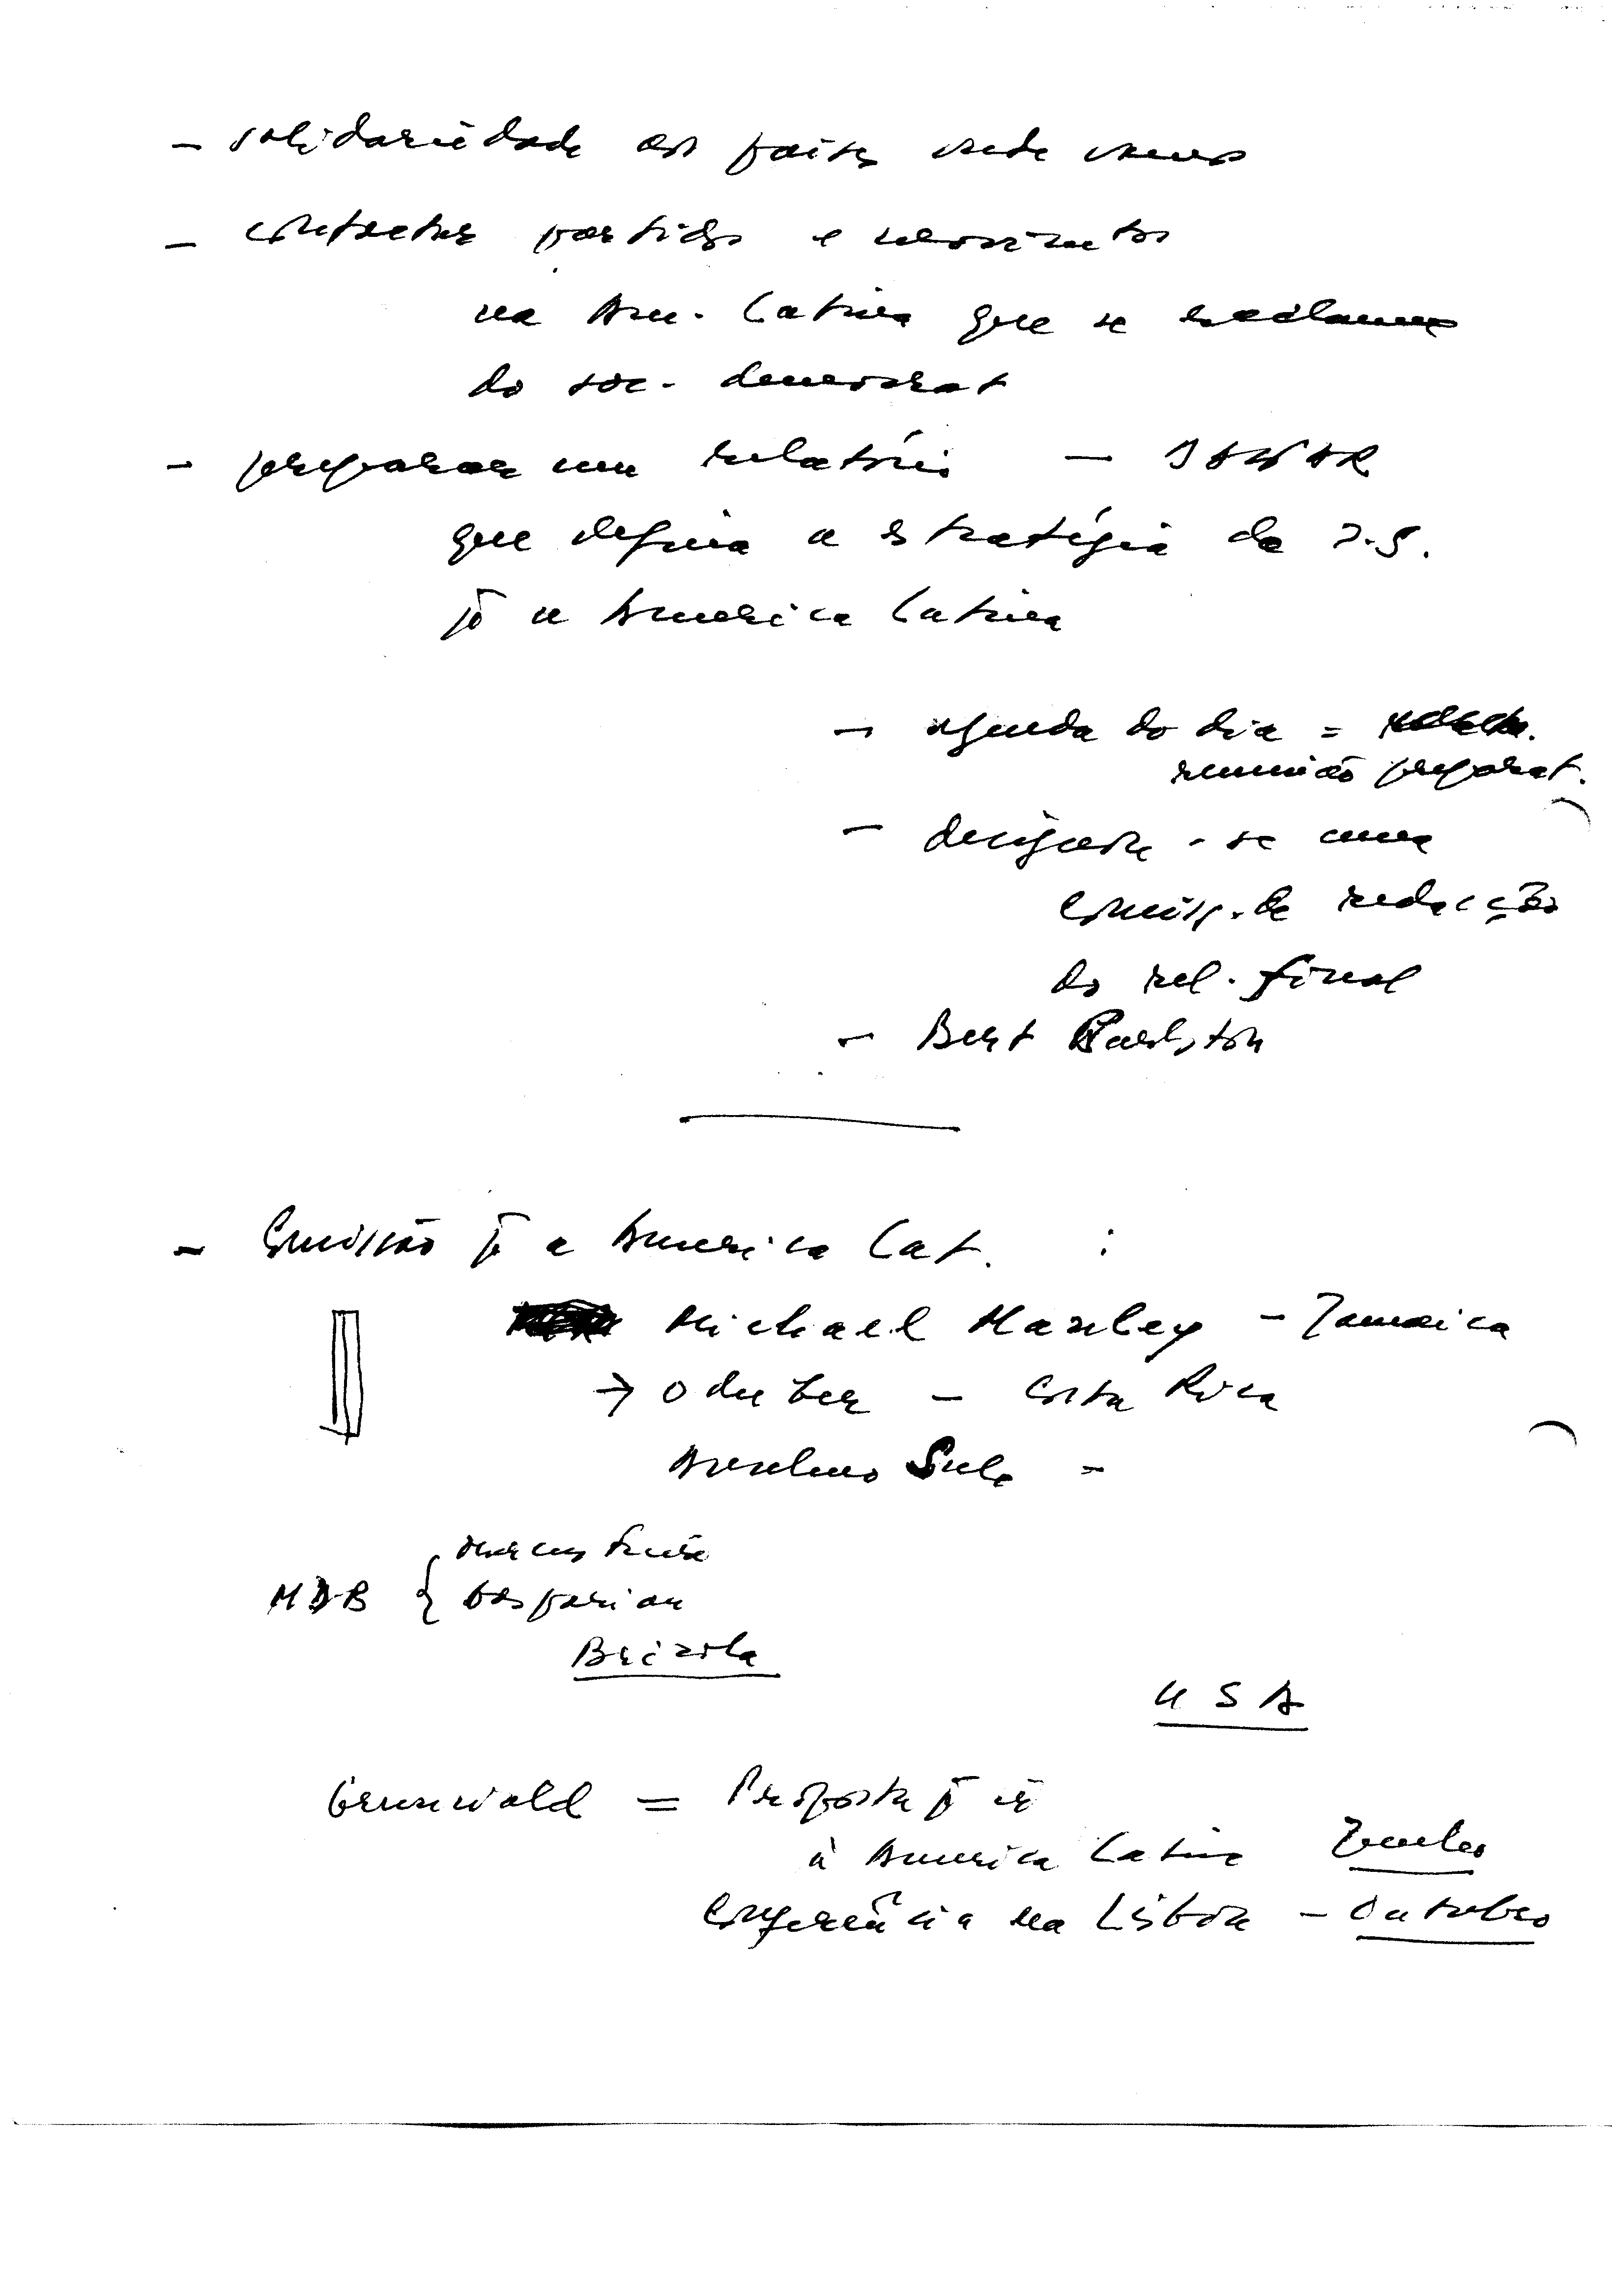 - solidariedade aos países
- contactar partidos e movimentos
na Am. Latina que se reclamem
do soc. democrat
- preparar um relatório - DAKAR
que defina a estratégia da I.S.
pª a America Latina
- agenda do dia =
reunião preparat.
- designou-se uma
comiss. de redacção
do rel. final
- Bernt Carlsson
- Comissão pª a America Lat. :
Michael Manley - Jamaica
→ Oduber - Costa Rica
Anselmo Sule -
MDB { Gasparian
Brizola
USA
Grunwald = Proposta pª ir
à America Latina Junho
Conferência na Lisboa - Outubro